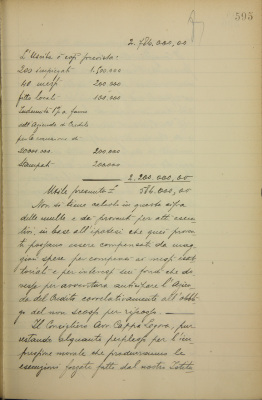 595
2.766.000,00
L'Uscita è così prevista:
200 impiegati 1.500.000
40 messi 200.000
fitto locali 100.000
Indennità 1% a favore
dell'Azienda di Credito
per la riscossione di
20.000.000 200.000
Stampati 200.000
2.200.000,00
Utile presunto L. 566.000,00
Non si tiene calcolo in questa cifra
delle multe e dei proventi per atti esecu-
tivi, in base all'ipotesi che quei proven-
ti possano essere compensati da mag-
giori spese per compensi ai messi
e per interessi sui fondi che do-
vesse per avventura anticipare l'Azien-
da del Credito correlativamente all'obbli-
go del non scosso per riscosso.
Il Consigliere Avv. Cappa Legora, pur
restando alquanto perplesso per l'im-
pressione morale che produrranno le
esenzioni forzate fatte dal nostro Istitu